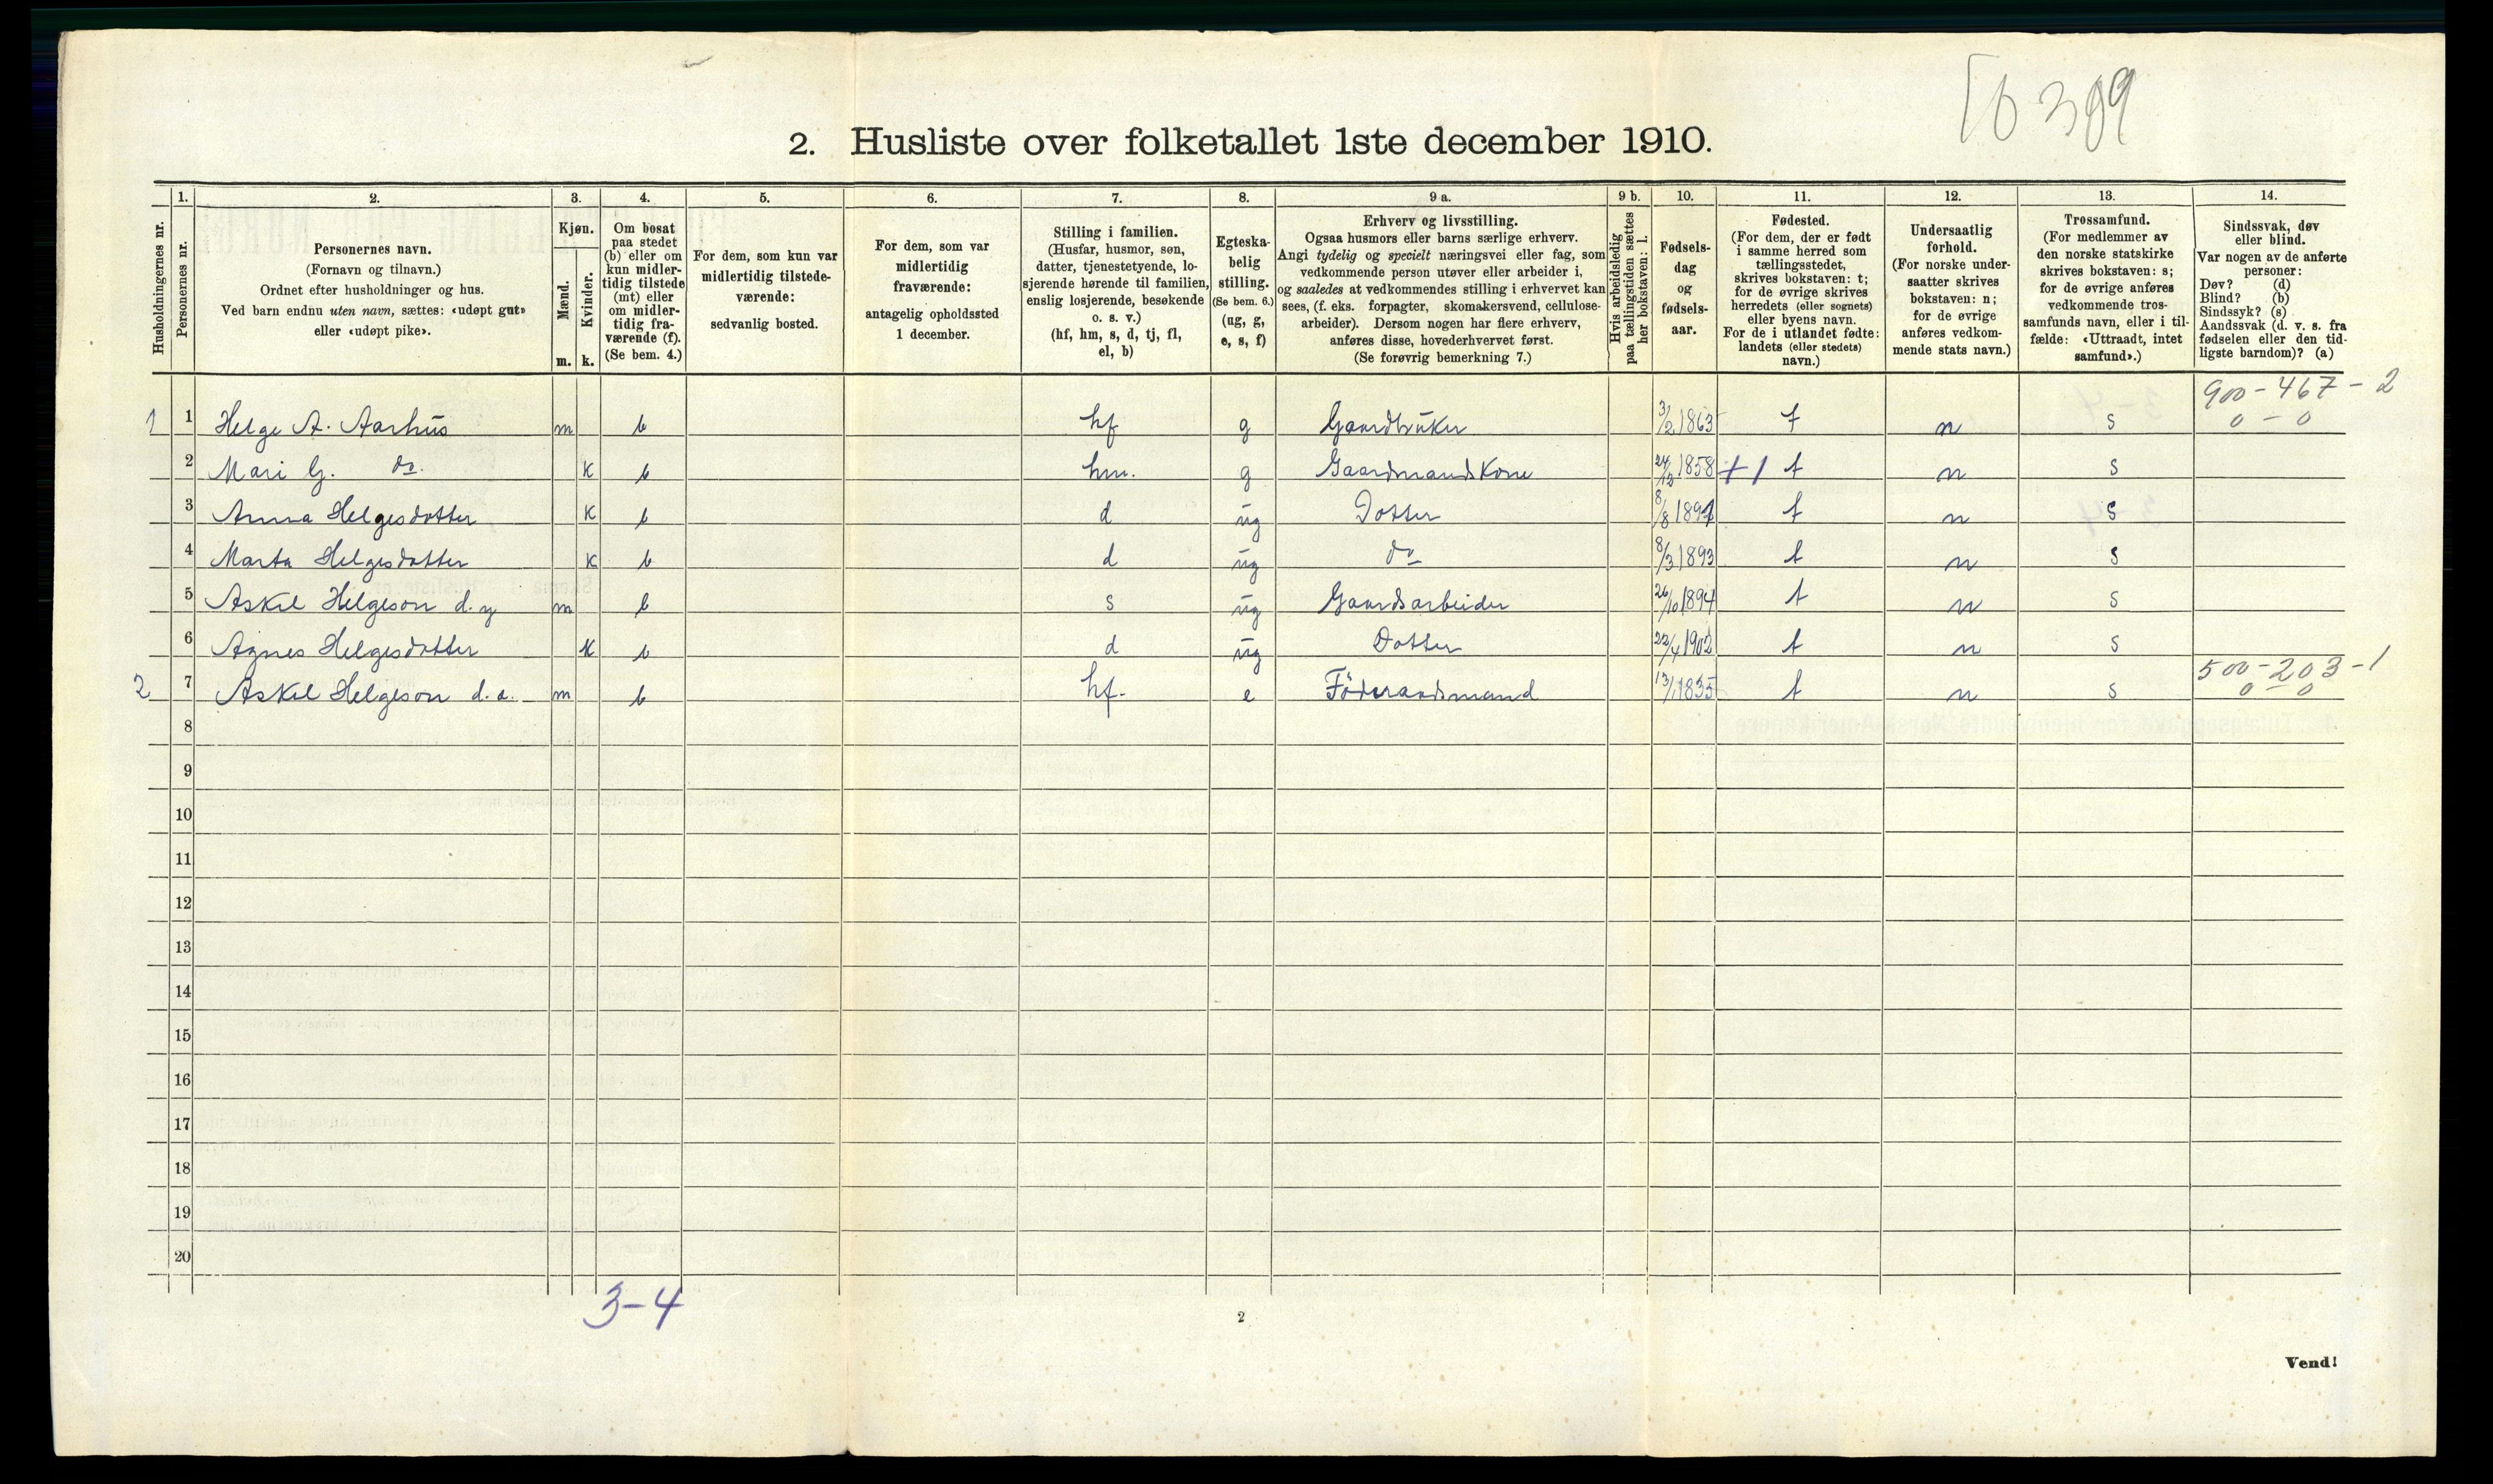 [6 389
2. Husliste over folketallet 1ste december 1910.
Husholdningernes nr.
1.
Personernes nr.
2.
Personernes navn.
(Fornavn og tilnavn.)
Ordnet efter husholdninger og hus.
Ved barn endnu uten navn, sættes: «udøpt gut»
eller «udøpt pike».
3.
Kjøn.
Mænd.
m.
Kvinder.
k.
4.
Om bosat
paa stedet
(b) eller om
kun midler-
tidig tilstede
(mt) eller
om midler-
tidig fra-
værende (f).
(Se bem. 4.)
5.
For dem, som kun var
midlertidig tilstede-
værende:
sedvanlig bosted.
6.
For dem, som var
midlertidig
fraværende:
antagelig opholdssted
1 december.
7.
Stilling i familien.
(Husfar, husmor, søn,
datter, tjenestetyende, lo-
sjerende hørende til familien,
enslig losjerende, besøkende
o. s. v.)
(hf, hm, s, d, tj, fl,
el, b)
8.
Egteska-
belig
stilling.
(Se bem. 6.)
(ug, g,
e, s, f)
9 a.
Erhverv og livsstilling.
Ogsaa husmors eller barns særlige erhverv.
Angi tydelig og specielt næringsvei eller fag, som
vedkommende person utøver eller arbeider i,
og saaledes at vedkommendes stilling i erhvervet kan
sees, (f. eks. forpagter, skomakersvend, cellulose-
arbeider). Dersom nogen har flere erhverv,
anføres disse, hovederhvervet først.
(Se forøvrig bemerkning 7.)
9 b.
Hvis arbeidsledig
paa tællingstiden sættes
her bokstaven: l.
10.
Fødsels-
dag
og
fødsels-
aar.
11.
Fødested.
(For dem, der er født
i samme herred som
tællingsstedet,
skrives bokstaven: t;
for de øvrige skrives
herredets (eller sognets)
eller byens navn.
For de i utlandet fødte:
landets (eller stedets)
navn.)
12.
Undersaatlig
forhold.
(For norske under-
saatter skrives
bokstaven: n;
for de øvrige
anføres vedkom-
mende stats navn.)
13.
Trossamfund.
(For medlemmer av
den norske statskirke
skrives bokstaven: s;
for de øvrige anføres
vedkommende tros-
samfunds navn, eller i til-
fælde: «Uttraadt, intet
samfund».)
14.
Sindssvak, døv
eller blind.
Var nogen av de anførte
personer:
Døv? (d)
Blind? (b)
Sindssyk? (s)
Aandssvak (d. v. s. fra
fødselen eller den tid-
ligste barndom)? (a)
900-467-2
1 1 Helge A. Aarhus m b hf g Gaardbruker 3/2 1863 t n s 0-0
2 Mari G. do. k b hm. g Gaardmandskone 24/12 1858 +1 t n s
3 Anna Helgesdotter k b d ug Dotter 8/8 1891 t n s
4 Marta Helgesdotter k b d ug do 8/3 1893 t n s
5 Askil Helgeson d.y m b s ug Gaardsarbeider 26/10 1894 t n s
6 Agnes Helgesdotter k b d ug Dotter 22/4 1902 t n s
500-203-1
2 7 Askil Helgeson d.e. m b hf. e Föderaadsmand 13/1 1835 t n s 0-0
8
9
10
11
12
13
14
15
16
17
18
19
20
3-4
2
Vend!